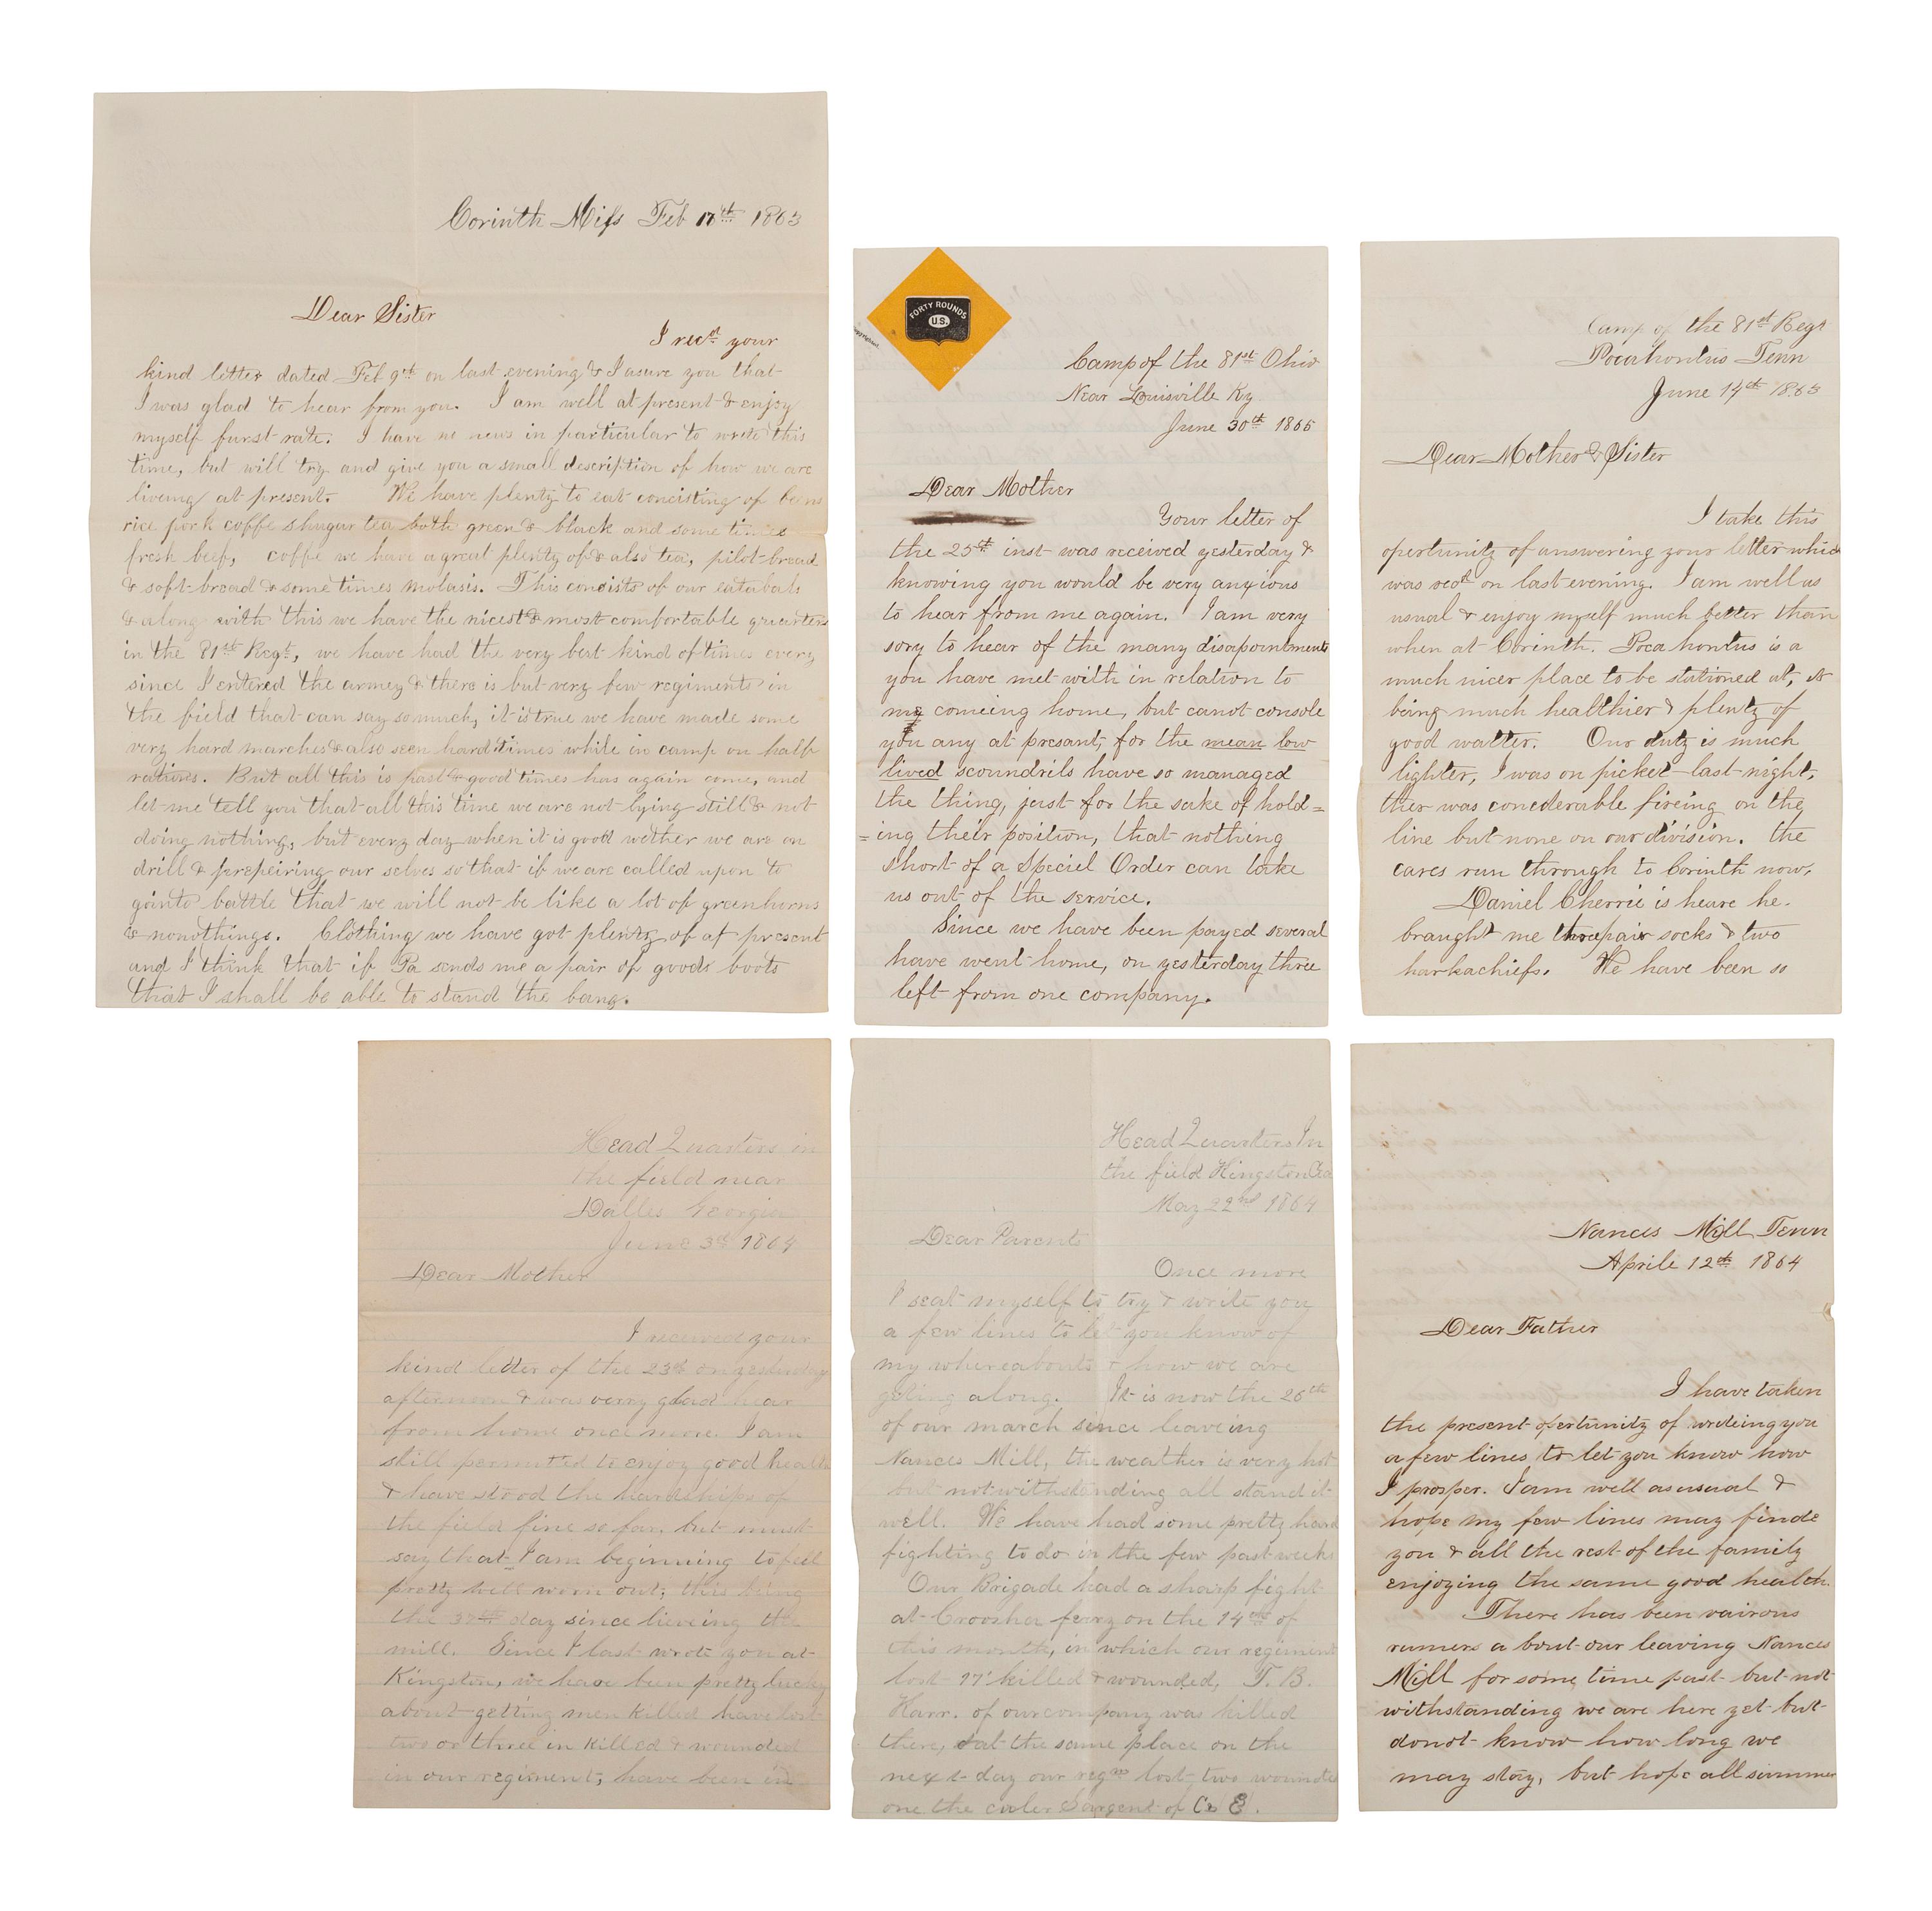 Corinth Miss Feb 17th 1863
Dear Sister
I recd your
kind letter dated Feb 9th on last evening & I asure you that
I was glad to hear from you. I am well at present & enjoy
myself furst rate. I have no news in particular to write this
time, but will try and give you a small description of how we are
liveing at present. We have plenty to eat concisting of beens
rice pork coffe shugar tea both green & black and some times
fresh beef, coffe we have a great plenty of & also tea, pilot-bread
& soft-bread & some times molasis. This concists of our eatabals
& along with this we have the nicest & most comfortable quarters
in the 81st Regt, we have had the very best kind of times every
since I entered the armey & there is but very few regiments in
the field that can say so much, it is true we have made some
very hard marches & also seen hard times while in camp on half
rations. But all this is past & good times has again come, and
let me tell you that all this time we are not lying still & not
doing nothing, but every day when it is good wether we are on
drill & prepeiring our selves so that if we are called upon to
go into battle that we will not be like a lot of greenhorns
& nonothings. Clothing we have got plenty of at present
and I think that if Pa sends me a pair of goods boots
that I shall be able to stand the bang.
FORTY ROUNDS
U.S.
Camp of the 81st Ohio
Near Louisville Ky
June 30th 1865
Dear Mother
Your letter of
the 25th inst was received yesterday &
knowing you would be very anxious
to hear from me again. I am very
sory to hear of the many disapointments
you have met with in relation to
my comeing home, but canot console
you any at presant, for the mean low
lived scoundrils have so managed
the thing, just for the sake of hold=
=ing their position, that nothing
short of a Speciel Order can take
us out of the service.
Since we have been payed several
have went home, on yesterday three
left from one company.
Camp of the 81st Regt
Pocahontus Tenn
June 14th 1863
Dear Mother & Sister
I take this
opertunity of answering your letter which
was recd on last evening. I am well as
usual & enjoy myself much better than
when at Corinth. Pocahontus is a
much nicer place to be stationed at, it
being much healthier & plenty of
good watter. Our duty is much
lighter, I was on picket last night,
ther was concederable fireing on the
line but none on our division. the
cares run through to Corinth now,
Daniel Cherrie is heare he
braught me three pair socks & two
harkachiefs. We have been so
Head Quarters in
the field near
Dalles Georgia
June 3rd 1864
Dear Mother
I received your
kind letter of the 23rd on yesterday
afternoon & was verry glad hear
from home once more. I am
still permitted to enjoy good health
& have stood the hardships of
the field fine so far, but must
say that I am beginning to feel
pretty well worn out; this being
the 37th day since lieveing the
mill. Since I last wrote you at
Kingston, we have been pretty lucky
about getting men killed have lost
two or three in killed & wounded
in our regiment; have been in
Head Quarters In
the field Kingston Ga
May 22nd 1864
Dear Parents
Once more
I seat myself to try & write you
a few lines to let you know of
my whereabouts & how we are
geting along. It is now the 26th
of our march since leaveing
Nances Mill, the weather is very hot
but notwithstanding all stand it
well. We have had some pretty hard
fighting to do in the few past weeks
Our Brigade had a sharp fight
at Croosha ferry on the 14th of
this month, in which our regiment
lost 17 killed & wounded, T. B.
Karr. of our company was killed
there, & at the same place on the
next day our regmt lost two wounded
one the culer Sargent of Co E.
Nances Mill Tenn
Aprile 12th 1864
Dear Father
I have taken
the present opertunity of writeing you
a few lines to let you know how
I prosper. I am well as usual &
hope my few lines may finde
you & all the rest of the family
enjoying the same good health.
There has been vairous
rumers a bout our leaving Nances
Mill for some time past but not
withstanding we are here yet but
donot know how long we
may stay, but hope all summer